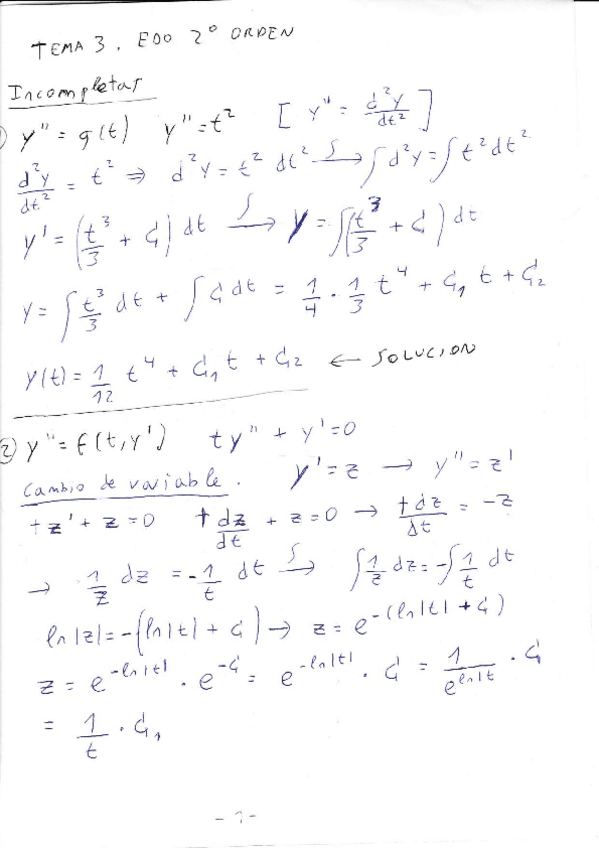 TEMA 3. EDO 2º ORDEN
Incompletas
y'' = g(t)   y'' = t²   [ y'' = d²y/dt² ]
d²y/dt² = t² ⇒ d²y = t² dt² ∫→ ∫d²y = ∫t² dt²
y' = (t³/3 + C₁) dt ∫→ y = ∫(t³/3 + C₁) dt
y = ∫ t³/3 dt + ∫ C₁ dt = 1/4 · 1/3 t⁴ + C₁ t + C₂
y(t) = 1/12 t⁴ + C₁ t + C₂ ← SOLUCION
2) y'' = f(t, y')   t y'' + y' = 0
Cambio de variable.   y' = z → y'' = z'
t z' + z = 0   t dz/dt + z = 0 → t dz/dt = -z
→ 1/z dz = -1/t dt ∫→ ∫ 1/z dz = -∫ 1/t dt
ln|z| = -(ln|t| + C₁) → z = e^-(ln|t| + C₁)
z = e^-ln|t| · e^-C₁ = e^-ln|t| · C₁ = 1/e^ln|t · C₁
= 1/t · C₁,